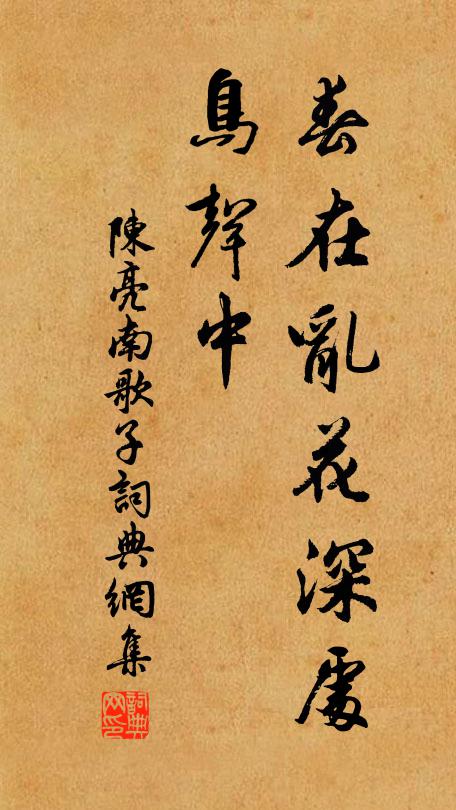 春在亂花深處
鳥聲中
陳亮南歌子詞典網集
詞典
网印